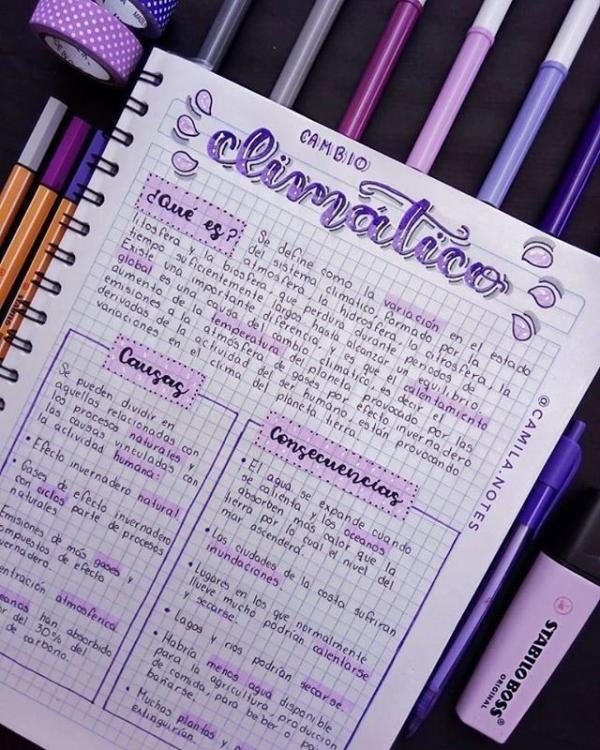 CAMBIO
climático
¿Qué es?
Se define como la variación en el estado
del sistema climático, formado por la
atmósfera, la hidrósfera, la citrosfera, la
litosfera y la biosfera, que perdura durante periodos de
tiempo suficientemente largos hasta alcanzar un equilibrio.
Existe una importante diferencia, y es que el calentamiento
global es una causa del cambio climático, es decir el
aumento de la temperatura del planeta provocado por las
emisiones a la atmósfera de gases por efecto invernadero
derivadas de la actividad del ser humano, están provocando
variaciones en el clima del planeta tierra.
@CAMILA.NOTES
Causas
Se pueden dividir en
aquellas relacionadas con
los procesos naturales y
las causas vinculadas con
la actividad humana:
• Efecto invernadero natural
• Gases de efecto invernadero
con ciclos parte de procesos
naturales
Emisiones de más gases y
compuestos de efecto
atmosférica
han absorbido
del 30% del
de carbono.
Consecuencias
• El agua se expande cuando
se calienta y los oceanos
absorben más calor que la
tierra por lo cual el nivel del
mar ascenderá.
• Las ciudades de la costa sufriran
inundaciones
• Lugares en los que normalmente
llueve mucho podrían calentarse
y secarse.
• Lagos y rios podrían secarse.
• Habría menos agua disponible
para la agricultura, producción
de comida, para beber o
bañarse.
• Muchas plantas y
extinguirían.
STABILO BOSS
ORIGINAL